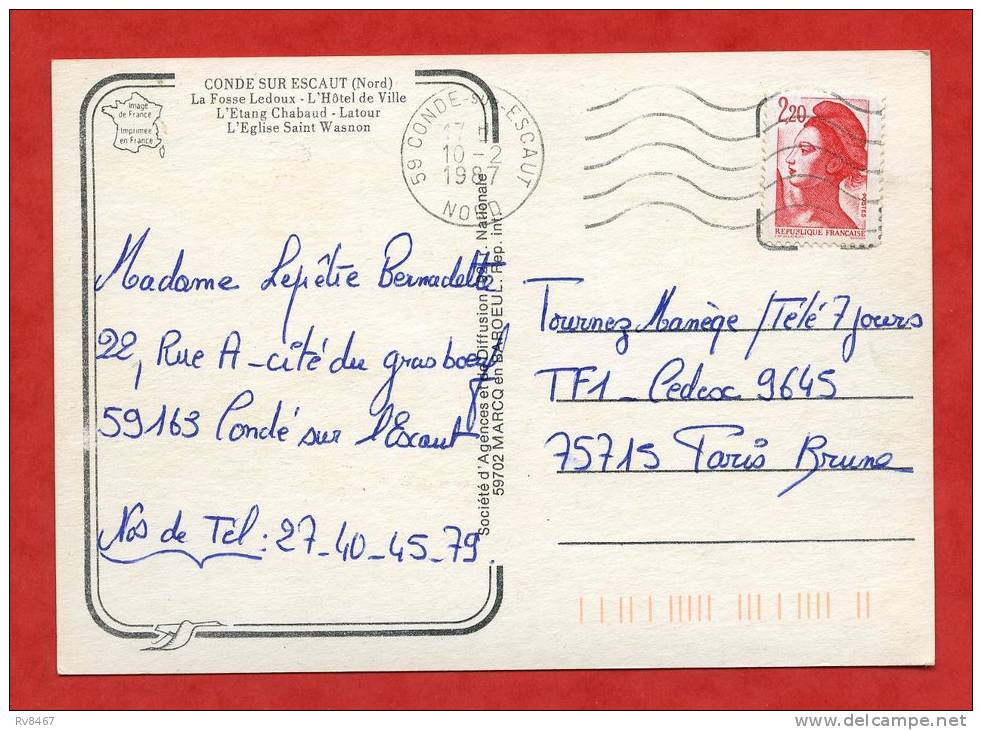 CONDE SUR ESCAUT (Nord)
La Fosse Ledoux - L'Hôtel de Ville
L'Etang Chabaud - Latour
L'Eglise Saint Wasnon
Image
de France
Imprimée
en France
59 CONDE-SUR-ESCAUT
17 H
10-2
1987
NORD
2,20
POSTES
REPUBLIQUE FRANÇAISE
Madame Lepêtre Bernadette
22, Rue A - cité du grasboeuf
59163 Condé sur l'Escaut
Nos de Tél : 27-40-45-79.
Société d'Agences et de Diffusion
Nationale
59702 MARCQ en BAROEUL. Rep. int.
Tournez Manège / Télé 7 jours
TF1 - Cedex 9645
75715 Paris Brune
Rv8467
www.delcampe.net